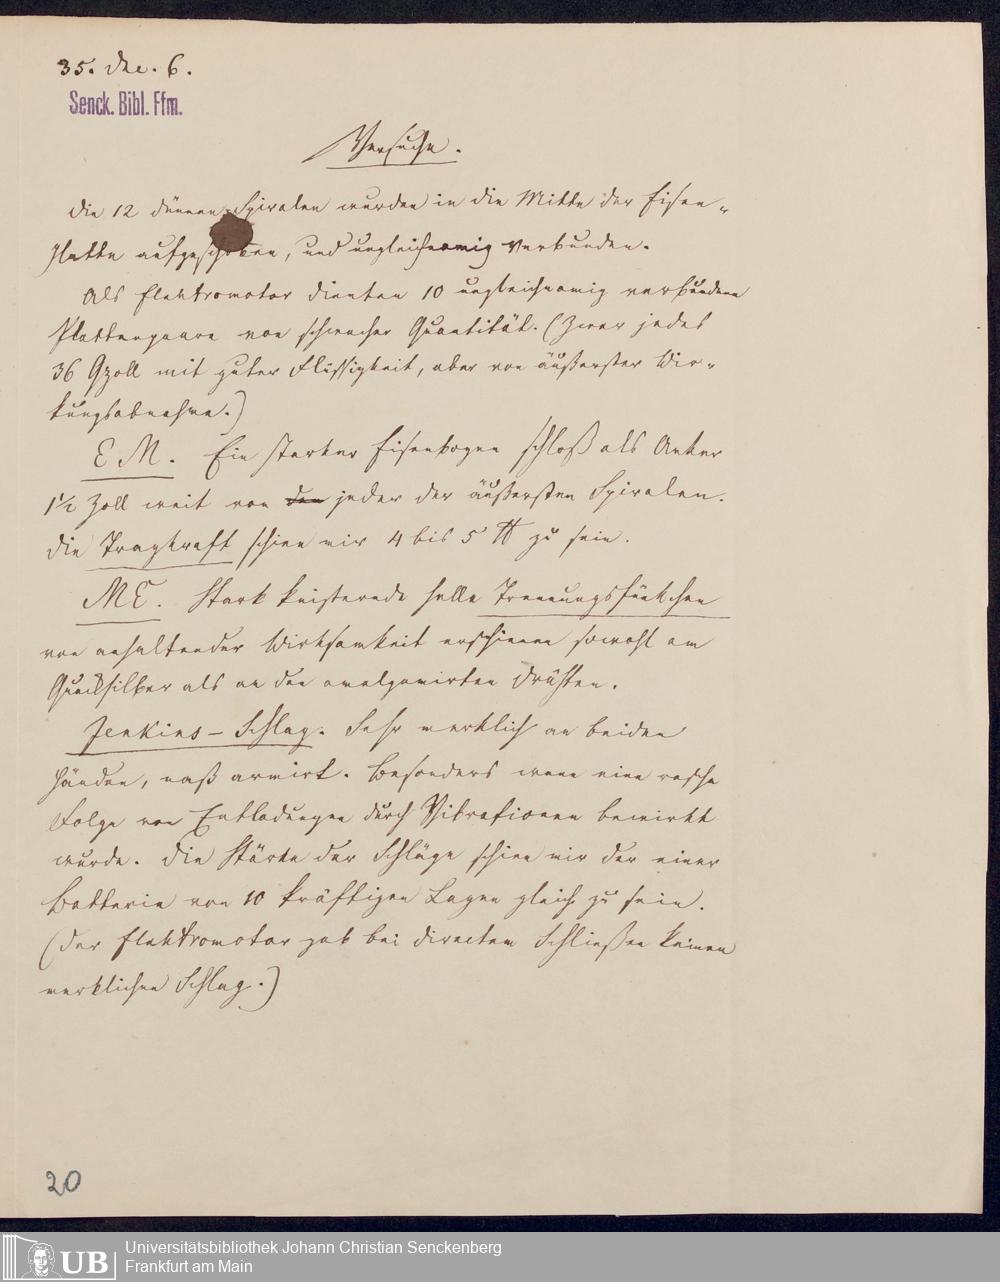 35. Dec. 6.
Senck. Bibl. Ffm.
Versuche.
Die 12 dünnen Spiralen wurden in die Mitte der Eisen-
platte aufgeschoben, und ungleichnamig verbunden.
Als Elektromotor dienten 10 ungleichnamig verbundene
Plattenpaare von schwacher Quantität. (Zwar jedes
36 Qzoll mit guter Flüssigkeit, aber von äußerster Wir-
kungsabnahme.)
E M. Ein starker Eisenbogen schloß als Anker
1½ Zoll weit von den jeder der äußersten Spiralen.
Die Tragkraft schien mir 4 bis 5 ℔ zu sein.
ME. Stark knisternde helle Trennungsfünkchen
von anhaltender Wirksamkeit erschienen sowohl am
Quecksilber als an den amalgamirten Drähten.
Jenkins-Schlag. Sehr merklich an beiden
Händen, naß armirt. Besonders wenn eine rasche
Folge von Entladungen durch Vibrationen bewirkt
wurde. Die Stärke der Schläge schien mir der einer
Batterie von 10 kräftigen Lagen gleich zu sein.
(Der Elektromotor gab bei directem Schließen keinen
merklichen Schlag.)
20
UB
Universitätsbibliothek Johann Christian Senckenberg
Frankfurt am Main